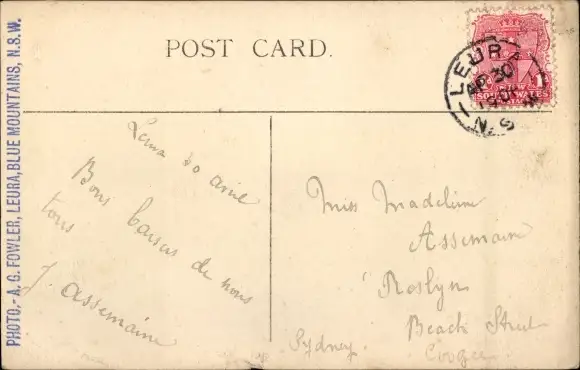 POST CARD.
PHOTO.- A. G. FOWLER, LEURA, BLUE MOUNTAINS, N.S.W.
LEURA
AP 30
N.S.W
NEW
SOUTH WALES
1
Leura 30 avril
Bons baisers de nous
tous
J. Assemaine
Miss Madeleine
Assemaine
Roslyn
Beach Street
Coogee
Sydney.